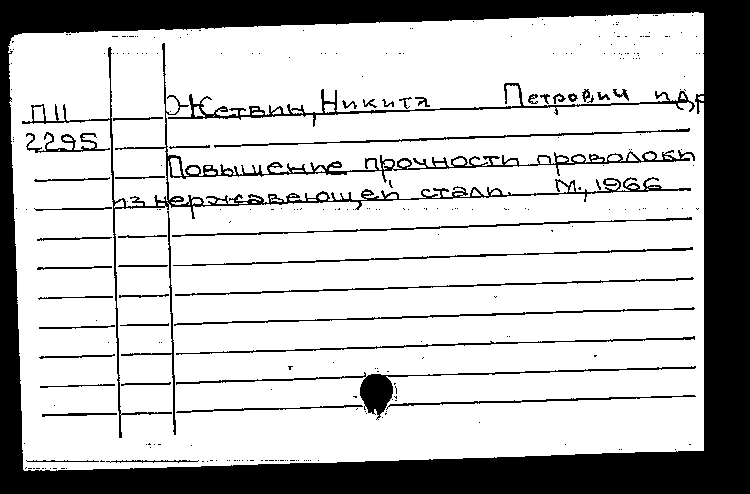 П11 Жетвин, Никита Петрович и др
2295
Повышение прочности проволоки
из нержавеющей стали. М., 1966